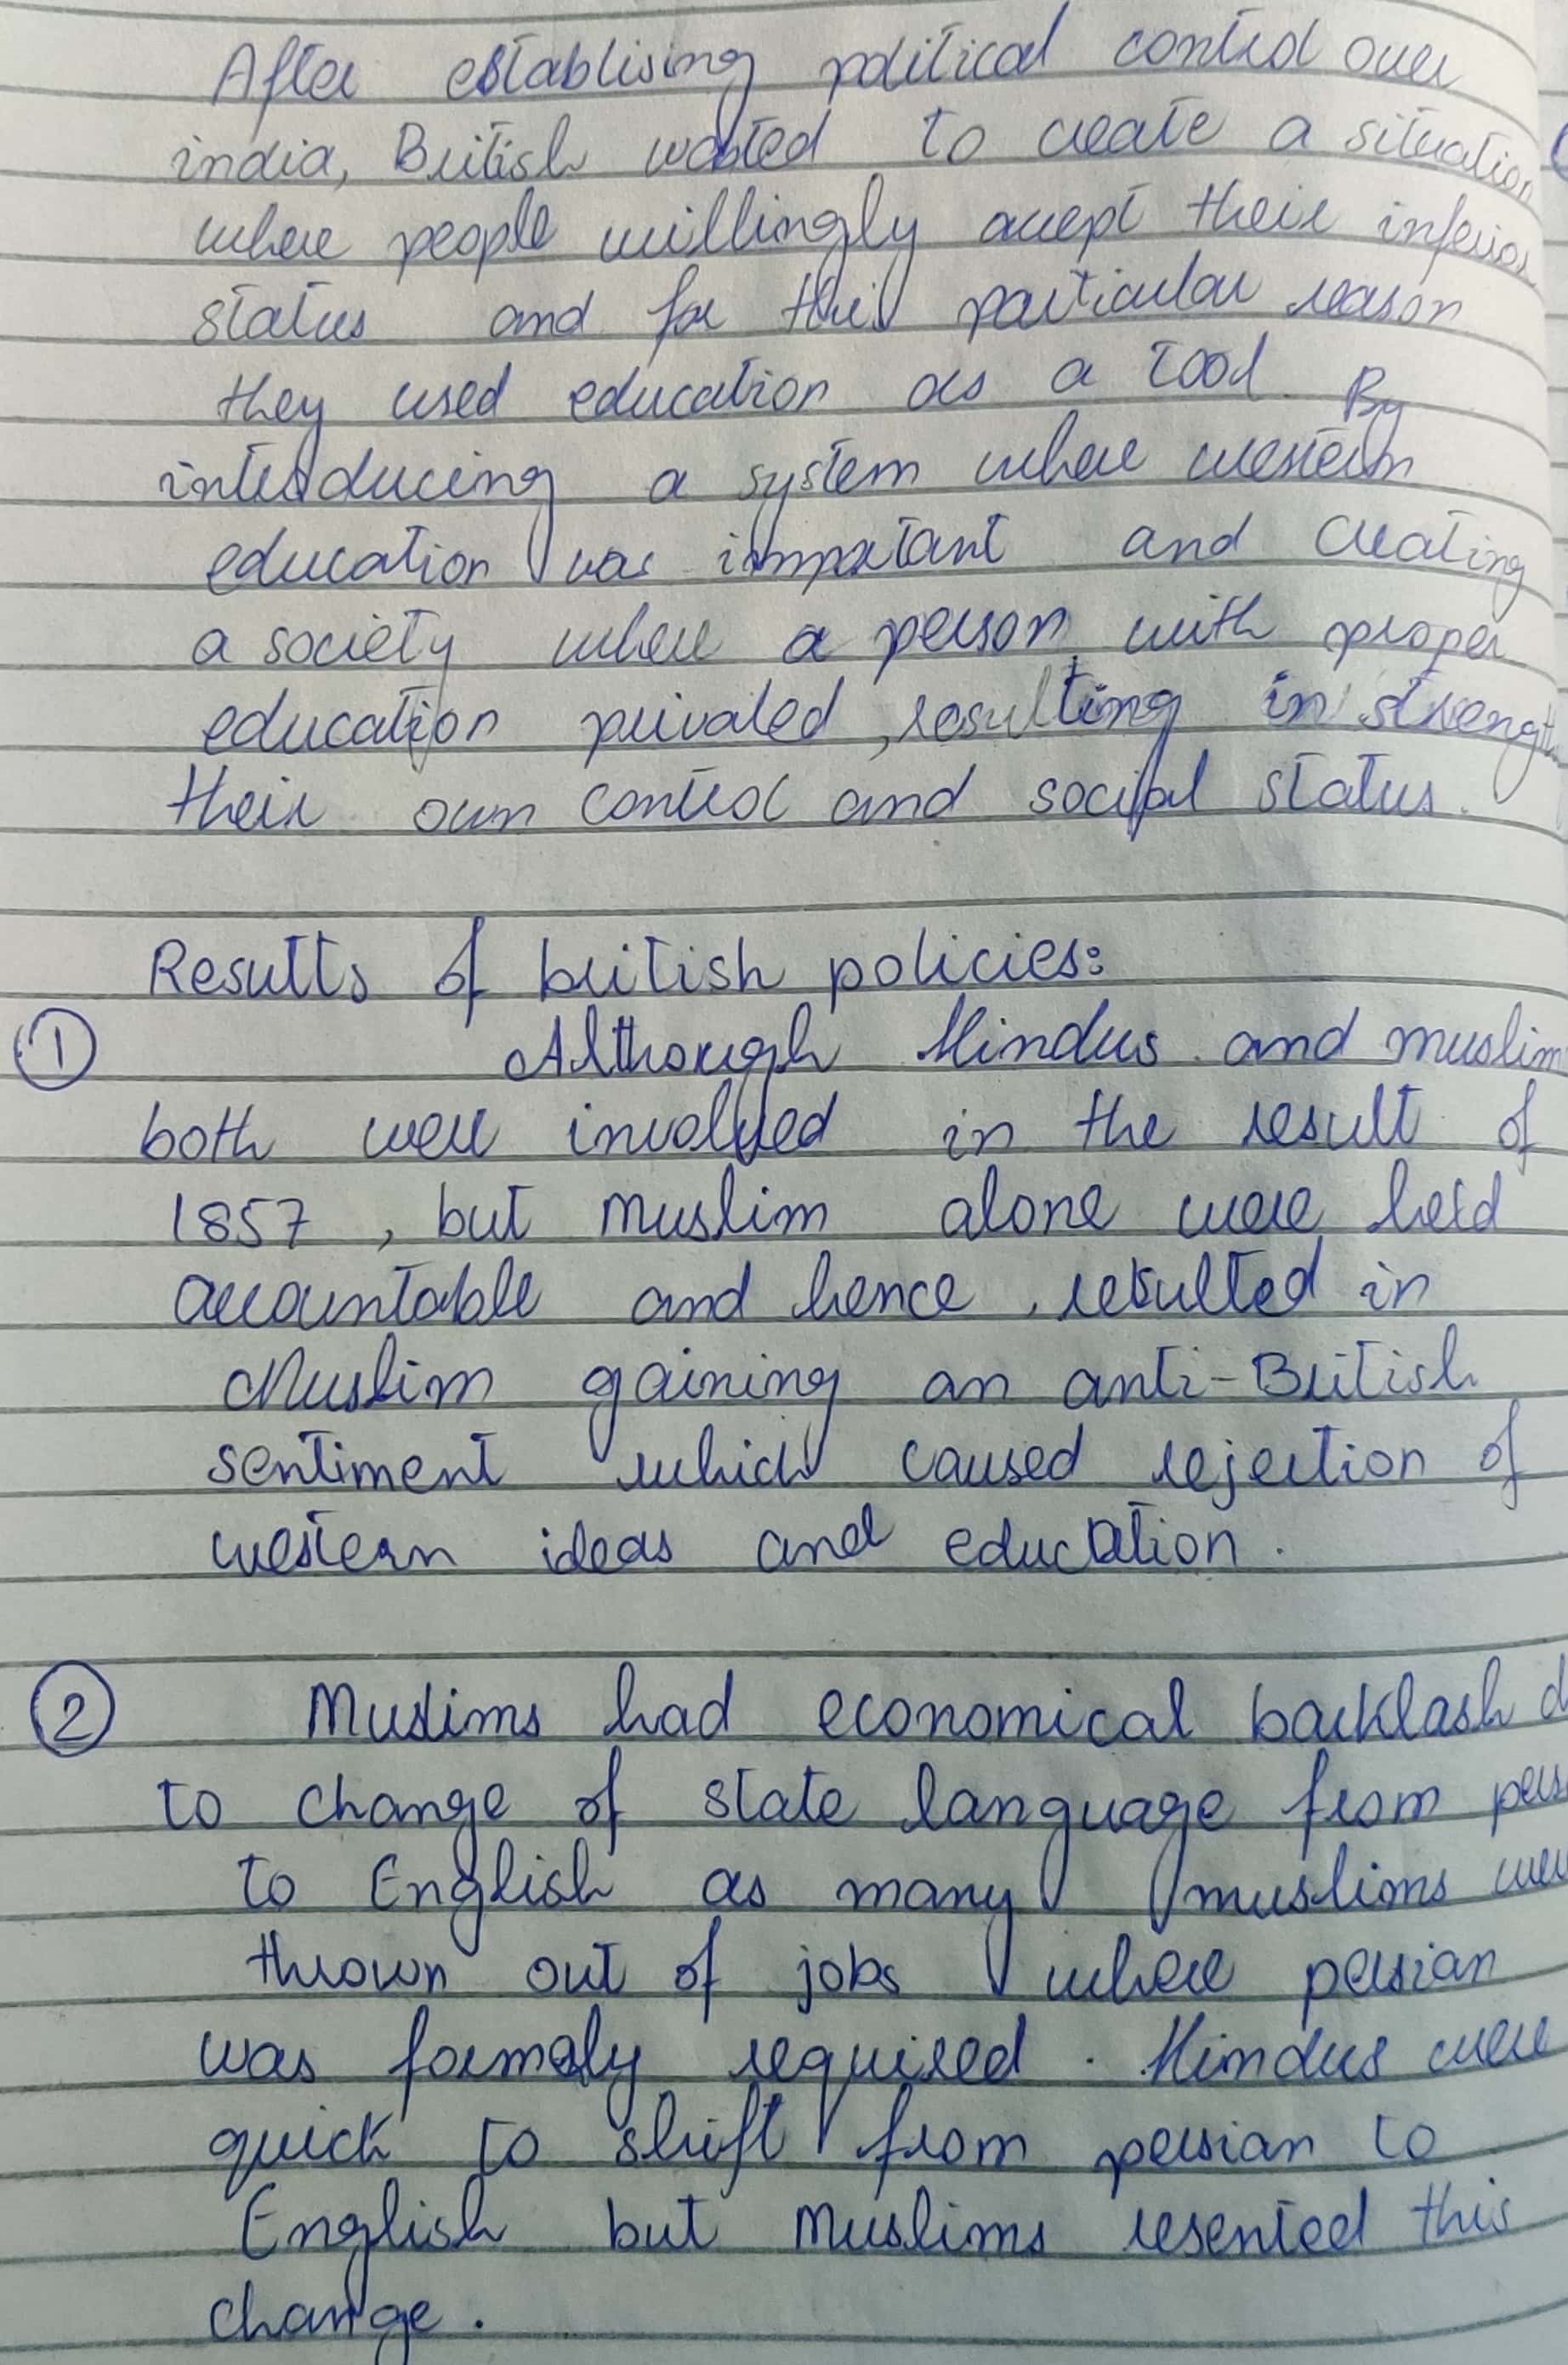 After establising political control over
india, British wanted to create a situation
where people willingly accept their inferior
status and for this particular reason
they used education as a tool. By
introducing a system where western
education was important and creating
a society where a person with proper
education privaled, resulting in strength
their own control and social status.
Results of british policies:
① Although Hindus and muslim
both were involved in the result of
1857, but Muslim alone were held
accountable and hence, resulted in
Muslim gaining an anti-British
sentiment which caused rejection of
western ideas and education.
② Muslims had economical backlash d
to change of state language from pers
to English as many muslims wer
thrown out of jobs where persian
was formaly required. Hindus were
quick to shift from persian to
English but Muslims resented this
change.